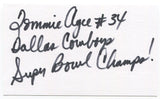 Tommie Agee #34
Dallas Cowboys
Super Bowl Champs!